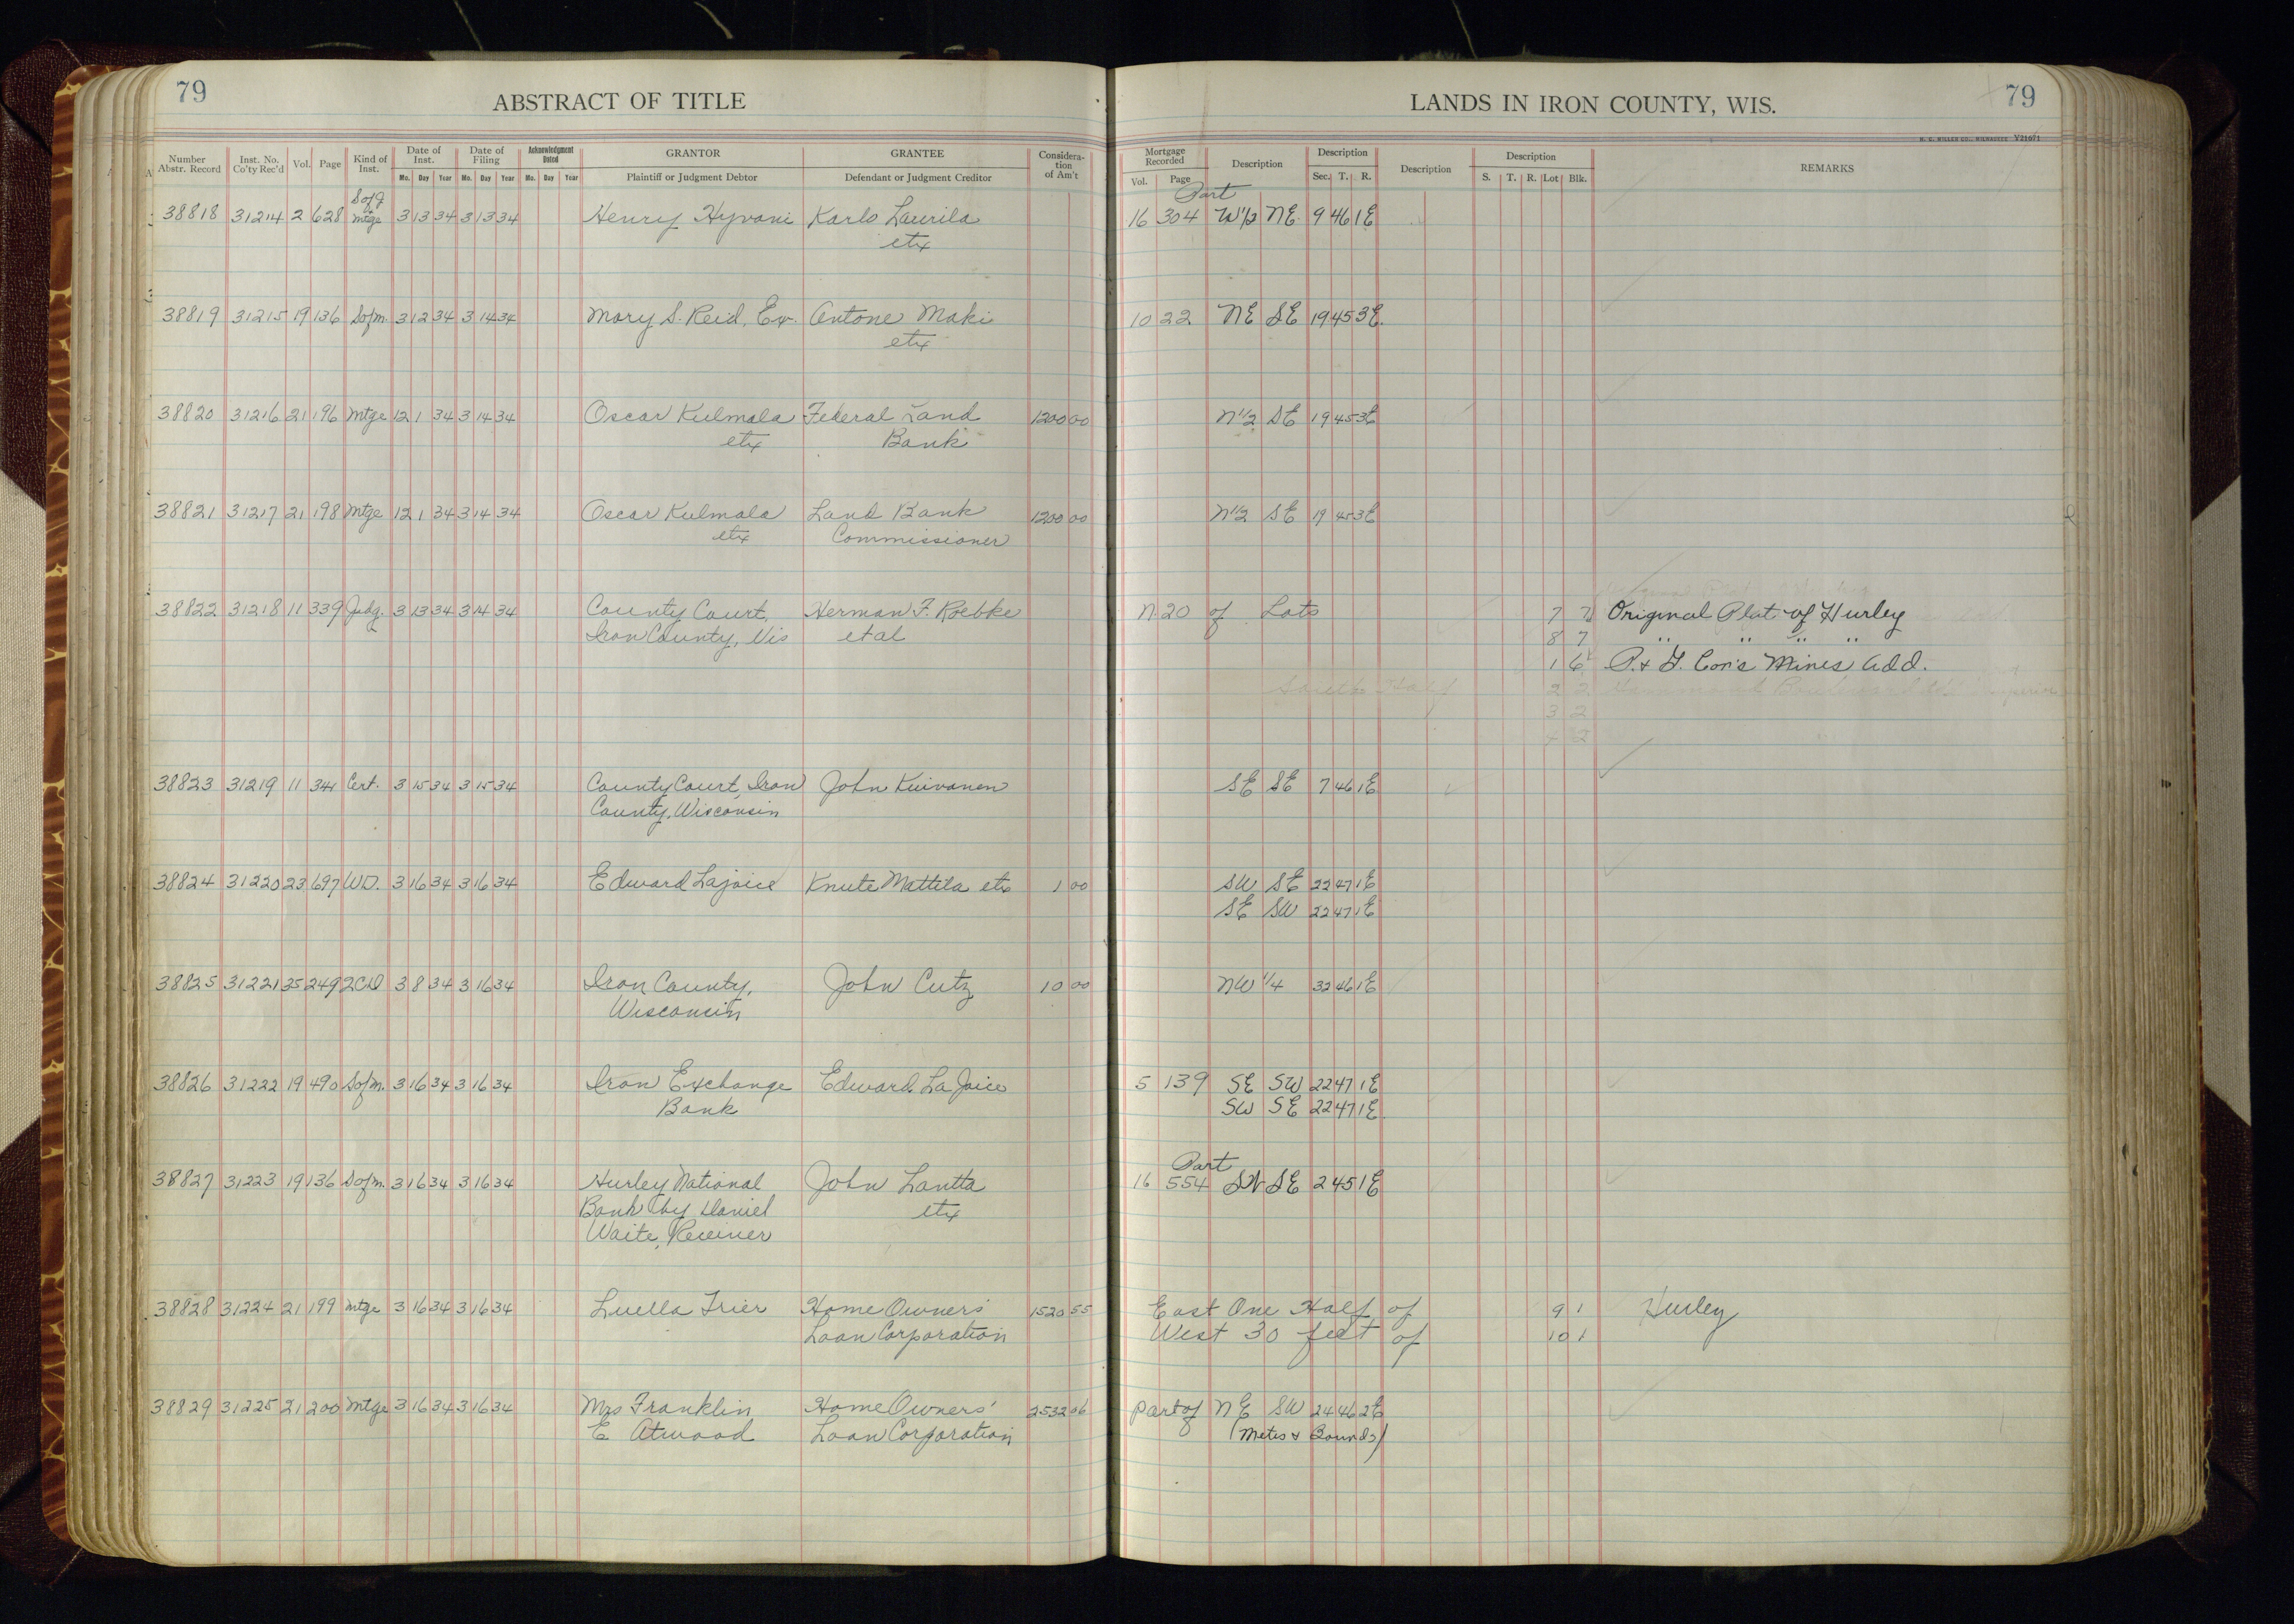 79
ABSTRACT OF TITLE
LANDS IN IRON COUNTY, WIS.
79
H. C. MILLER CO., MILWAUKEE V21671
Number Abstr. Record
Inst. No. Co'ty Rec'd
Vol.
Page
Kind of Inst.
Date of Inst.
Mo. Day Year
Date of Filing
Mo. Day Year
Acknowledgment Dated
Mo. Day Year
GRANTOR
Plaintiff or Judgment Debtor
GRANTEE
Defendant or Judgment Creditor
Consideration of Am't
Mortgage Recorded
Vol. Page
Description
Description
Sec. T. R.
Description
Description
S. T. R. Lot Blk.
REMARKS
S of J Part
38818 31214 2 628 mtge 3 13 34 3 13 34 Henry Hyvoni Karlo Laurila 16 304 W 1/2 NE 9 46 1E
etx
38819 31215 19 136 Sofm. 3 12 34 3 14 34 Mary S. Reid, Ex. Antone Maki 10 22 NE SE 19 45 3E
etx
38820 31216 21 196 Mtge 12 1 34 3 14 34 Oscar Kulmala Federal Land 1200 00 N 1/2 SE 19 45 3E
etx Bank
38821 31217 21 198 Mtge 12 1 34 3 14 34 Oscar Kulmala Land Bank 1200 00 N 1/2 SE 19 45 3E
etx Commissioner
38822 31218 11 339 Judg. 3 13 34 3 14 34 County Court, Herman F. Roebke N. 20 of Lots 7 7 Original Plat of Hurley
Iron County, Wis et al 8 7 " " " "
1 6 P. & L. Con's Mines Add.
South Half 2 2
3 2
4 2
38823 31219 11 341 Cert. 3 15 34 3 15 34 County Court, Iron John Kuivanen SE SE 7 46 1E
County, Wisconsin
38824 31220 23 697 W.D. 3 16 34 3 16 34 Edward Lajoice Knute Mattila etx 1 00 SW SE 22 47 1E
SE SW 22 47 1E
38825 31221 35 249 2CD 3 8 34 3 16 34 Iron County, John Cutz 10 00 NW 1/4 32 46 1E
Wisconsin
38826 31222 19 490 Sofm. 3 16 34 3 16 34 Iron Exchange Edward LaJoice 5 139 SE SW 22 47 1E
Bank SW SE 22 47 1E
Part
38827 31223 19 136 Sofm. 3 16 34 3 16 34 Hurley National John Lantta 16 554 SW SE 2 45 1E
Bank by Daniel etx
Waite, Receiver
38828 31224 21 199 Mtge 3 16 34 3 16 34 Luella Trier Home Owners' 1520 55 East One Half of 9 1 Hurley
Loan Corporation West 30 feet of 10 1
38829 31225 21 200 Mtge 3 16 34 3 16 34 Mrs Franklin Home Owners' 2532 06 part of NE SW 24 46 2E
E Atwood Loan Corporation (Metes & Bounds)